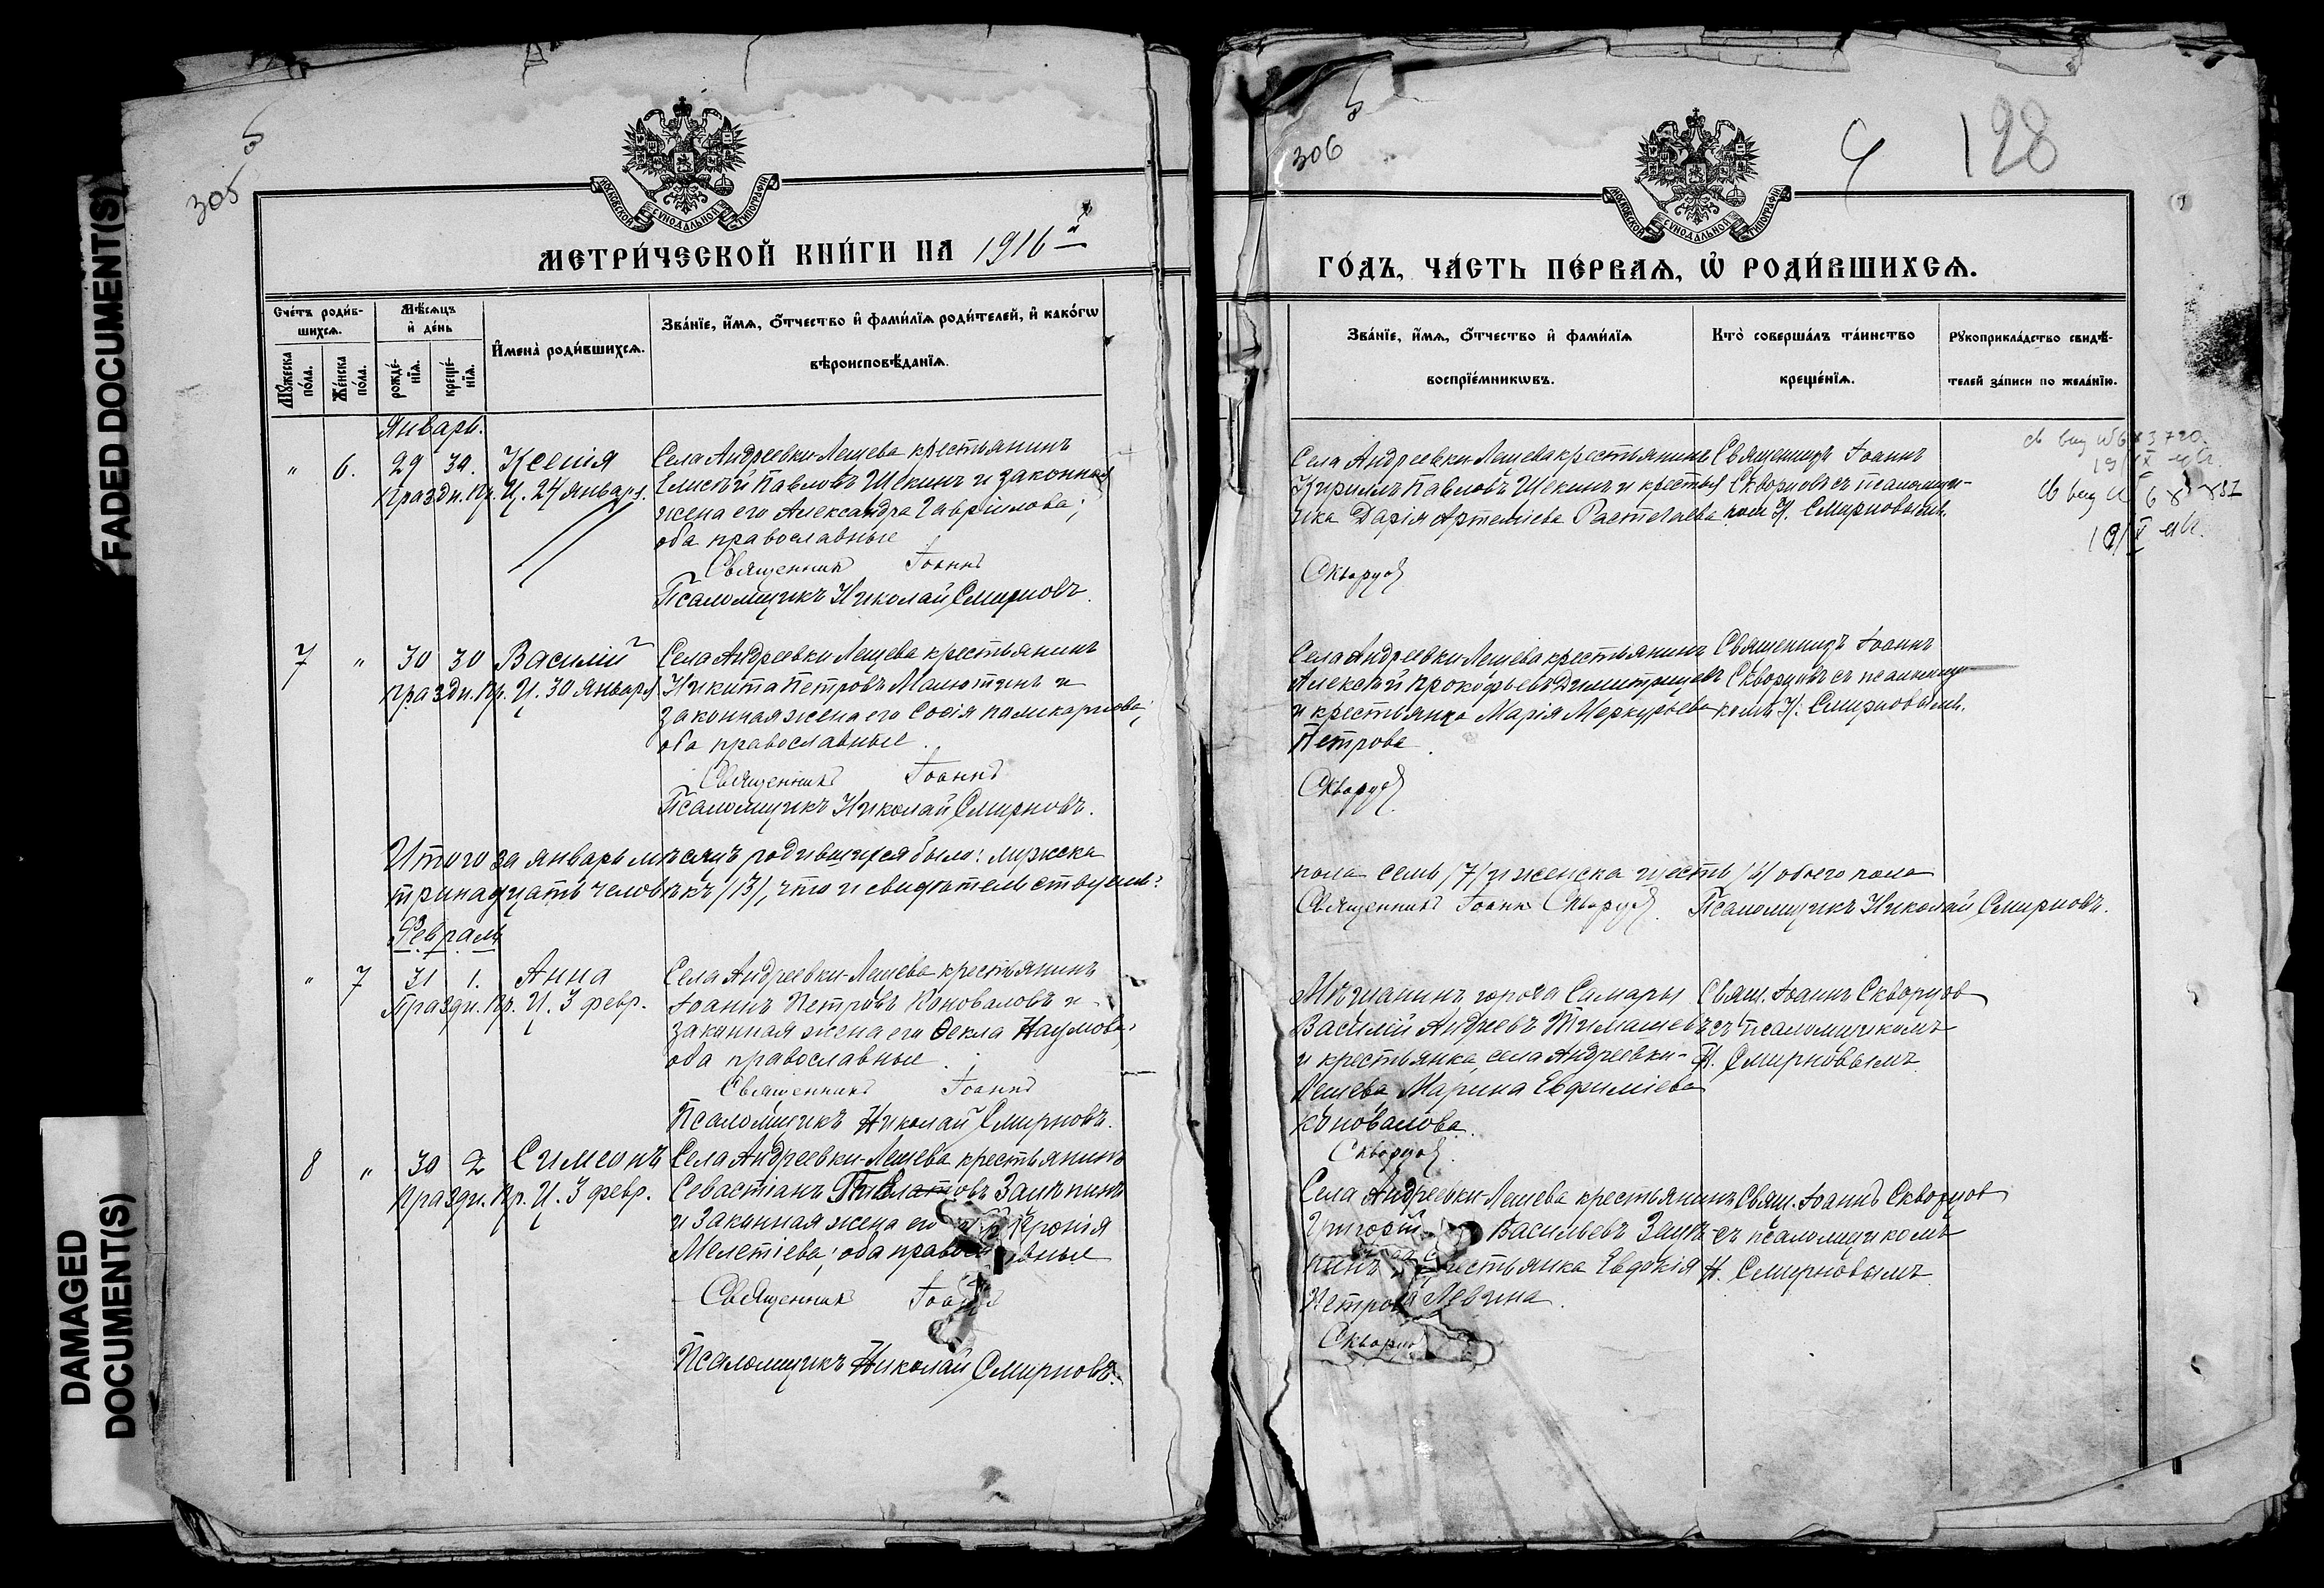 FADED DOCUMENT(S)
DAMAGED
DOCUMENT(S)
5
305
МОСКОВСКОЙ СѴНОДАЛЬНОЙ ТИПОГРАФІИ
МЕТРИ́ЧЕСКОЙ КНИ́ГИ НА 1916 й
Сче́тъ роди́в-
шихсѧ.
Мѣ́сѧцъ
и҆ де́нь
Мꙋ́жеска
по́ла.
Же́нска
по́ла.
рожде́-
нїѧ.
креще́-
нїѧ.
И҆мена̀ роди́вшихсѧ.
Зва́нїе, и҆́мѧ, ѻ҆́тчество и҆ фами́лїѧ роди́телей, и҆ како́гѡ
вѣроисповѣ́данїѧ.
Январь.
" 6. 29 30. Ксенія
Праздн. Пр. Ц. 24 января.
Села Андреевки-Лещева крестьянинъ
Павловъ Щекинъ и законная
жена его Александра Гавріилова;
оба православные
Священникъ Іоаннъ
Псаломщикъ Николай Смирновъ.
7 " 30 30 Василій
Праздн. Пр. Ц. 30 января
Села Андреевки Лещева крестьянинъ
Никита Петровъ Малютинъ и
законная жена его Софія Поликарпова;
оба православные.
Священникъ Іоаннъ
Псаломщикъ Николай Смирновъ.
Итого за январь мѣсяцъ родившихся было: мужска
тринадцать человѣкъ /13/, что и свидѣтельствуемъ:
Февраль
" 7 31 1. Анна
Праздн. Пр. Ц. 3 февр.
Села Андреевки-Лещева крестьянинъ
Іоаннъ Петровъ Коноваловъ и
законная жена его Ѳекла Наумова;
оба православные.
Священникъ Іоаннъ
Псаломщикъ Николай Смирновъ.
8 " 30 2 Симеонъ
Праздн. Пр. Ц. 3 февр.
Села Андреевки-Лещева крестьянинъ
Севастіанъ Зацѣпинъ
и законная жена его
Мелетіева; оба православные
Священникъ Іоаннъ
Псаломщикъ Николай Смирновъ.
5
306
128
МОСКОВСКОЙ СѴНОДАЛЬНОЙ ТИПОГРАФІИ
ГО́ДЪ, ЧА́СТЬ ПЕ́РВАѦ, Ѡ҆ РОДИ́ВШИХСѦ.
Зва́нїе, и҆́мѧ, ѻ҆́тчество и҆ фами́лїѧ
воспрїе́мникѡвъ.
Кто̀ соверша́лъ та́инство
креще́нїѧ.
Рꙋкоприкла́дство свидѣ́-
телей за́писи по жела́нїю.
Села Андреевки-Лещева крестьянинъ
Кириллъ Павловъ Щекинъ и крестья
нка Дарія Артеміева Растегаева
Скворцовъ
Священникъ Іоаннъ
Скворцовъ съ псаломщи-
комъ Н. Смирновымъ.
Села Андреевки Лещева крестьянинъ
Алексѣй Прокофьевъ Димитріевъ
и крестьянка Марія Меркурьева
Петрова.
Скворцовъ
Священникъ Іоаннъ
Скворцовъ съ псаломщи-
комъ Н. Смирновымъ.
пола семь /7/ и женска шесть /6/ обоего пола
Священникъ Іоаннъ Скворцовъ. Псаломщикъ Николай Смирновъ.
Мѣщанинъ города Самары
Василій Андреевъ Тимашевъ
и крестьянка села Андреевки-
Лещева Марина Евфиміева
Коновалова.
Скворцовъ.
Свящ. Іоаннъ Скворцов
съ псаломщикомъ
Н. Смирновымъ
Села Андреевки-Лещева крестьянинъ
Григорій Васильевъ Зацѣ-
пинъ и крестьянка Евдокія
Петрова Левина.
Скворцовъ
Свящ. Іоаннъ Скворцов
съ псаломщикомъ
Н. Смирновымъ